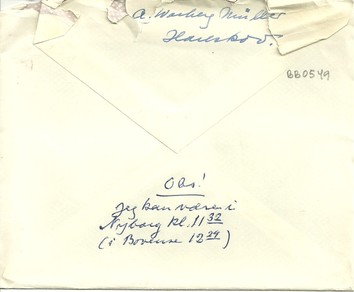 A. Warberg Müller
Hareskov.
BB0549
Obs!
Jeg kan være i
Nyborg kl. 11 32
(i Bovense 12 29)